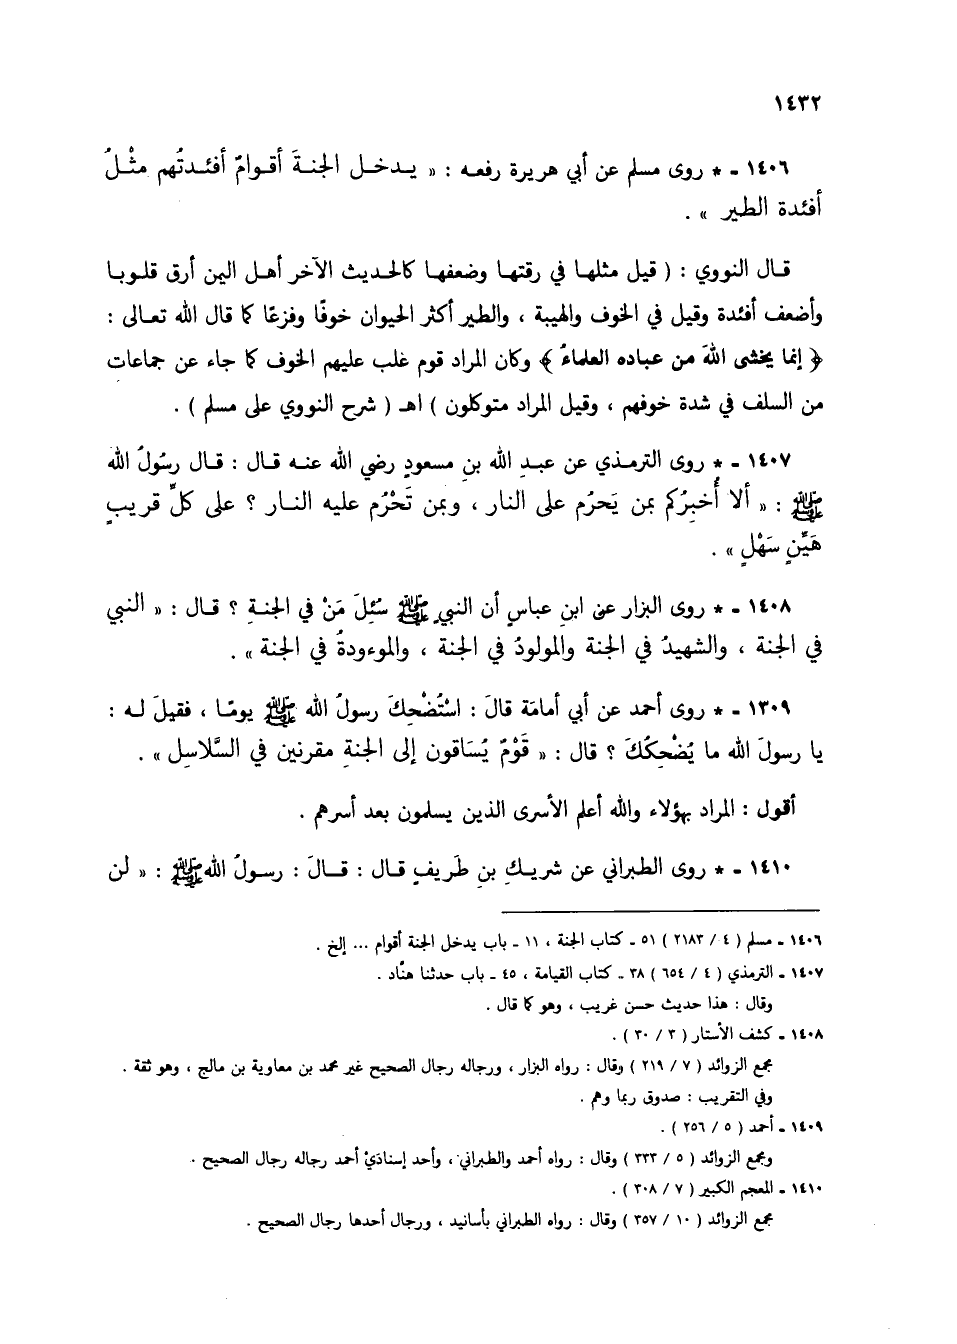 ١٤٣٢
١٤٠٦ - * روى مسلم عن أبي هريرة رفعه : « يـدخـل الجنـةَ أقـوامٌ أفئـدتُهم مثْـلُ
أفئدة الطير » .
قـال النووي : ( قيل مثلهـا في رقتهـا وضعفهـا كالحـديث الآخر أهـل اليمن أرق قلـوبـا
وأضعف أفئدة وقيل في الخوف والهيبة ، والطير أكثر الحيوان خوفًا وفزعًا كما قال الله تعـالى :
﴿ إنما يخشى اللهَ من عباده العلماءُ ﴾ وكان المراد قوم غلب عليهم الخوف كما جاء عن جماعات
من السلف في شدة خوفهم ، وقيل المراد متوكلون ) اهـ ( شرح النووي على مسلم ) .
١٤٠٧ - * روى الترمـذي عن عبـدِ الله بنِ مسعودٍ رضي الله عنـه قـال : قـال رسُولُ الله
ﷺ : « ألا أُخبِرُكم بمن يَحرُم على النار ، وبمن تَحْرُم عليه النـار ؟ على كلِّ قريبٍ
هَيِّنٍ سَهْلٍ » .
١٤٠٨ - * روى البزار عن ابنِ عباسٍ أن النبيَ ﷺ سُئِلَ مَنْ في الجنـةِ ؟ قـال : « النبي
في الجنة ، والشهيدُ في الجنة والمولودُ في الجنة ، والموءودةُ في الجنة » .
١٣٠٩ - * روى أحمد عن أبي أمامَة قالَ : اسْتُضْحِكَ رسولُ الله ﷺ يومًـا ، فقيلَ لـه :
يا رسولَ الله ما يُضْحِكُكَ ؟ قال : « قَوْمٌ يُسَاقون إلى الجنةِ مقرنين في السَّلاسِل » .
أقول : المراد بهؤلاء والله أعلم الأسرى الذين يسلمون بعد أسرهم .
١٤١٠ - * روى الطبراني عن شريـكِ بنِ طَريفٍ قـال : قـالَ : رسـولُ اللهﷺ : « لن
١٤٠٦ - مسلم ( ٤ / ٢١٨٣ ) ٥١ - كتاب الجنة ، ١١ - باب يدخل الجنة أقوام ... إلخ .
١٤٠٧ - الترمذي ( ٤ / ٦٥٤ ) ٣٨ - كتاب القيامة ، ٤٥ - باب حدثنا هنَّاد .
وقال : هذا حديث حسن غريب ، وهو كما قال .
١٤٠٨ - كشف الأستار ( ٣ / ٣٠ ) .
مجمع الزوائد ( ٧ / ٢١٩ ) وقال : رواه البزار ، ورجاله رجال الصحيح غير محمد بن معاوية بن مالج ، وهو ثقة .
وفي التقريب : صدوق ربما وهم .
١٤٠٩ - أحمد ( ٥ / ٢٥٦ ) .
ومجمع الزوائد ( ٥ / ٣٣٣ ) وقال : رواه أحمد والطبراني ، وأحد إسنادَيْ أحمد رجاله رجال الصحيح .
١٤١٠ - المعجم الكبير ( ٧ / ٣٠٨ ) .
مجمع الزوائد ( ١٠ / ٣٥٧ ) وقال : رواه الطبراني بأسانيد ، ورجال أحدها رجال الصحيح .